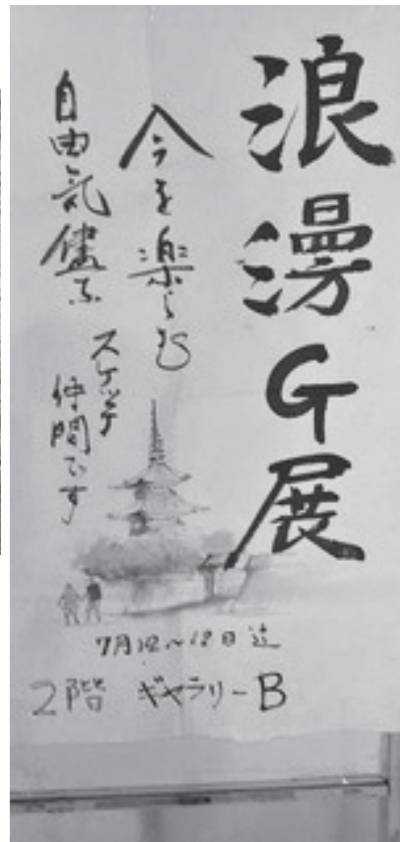 浪漫G展
今を楽しむ
自由気儘な
スケッチ
仲間です
7月12～18日迄
2階 ギャラリーB